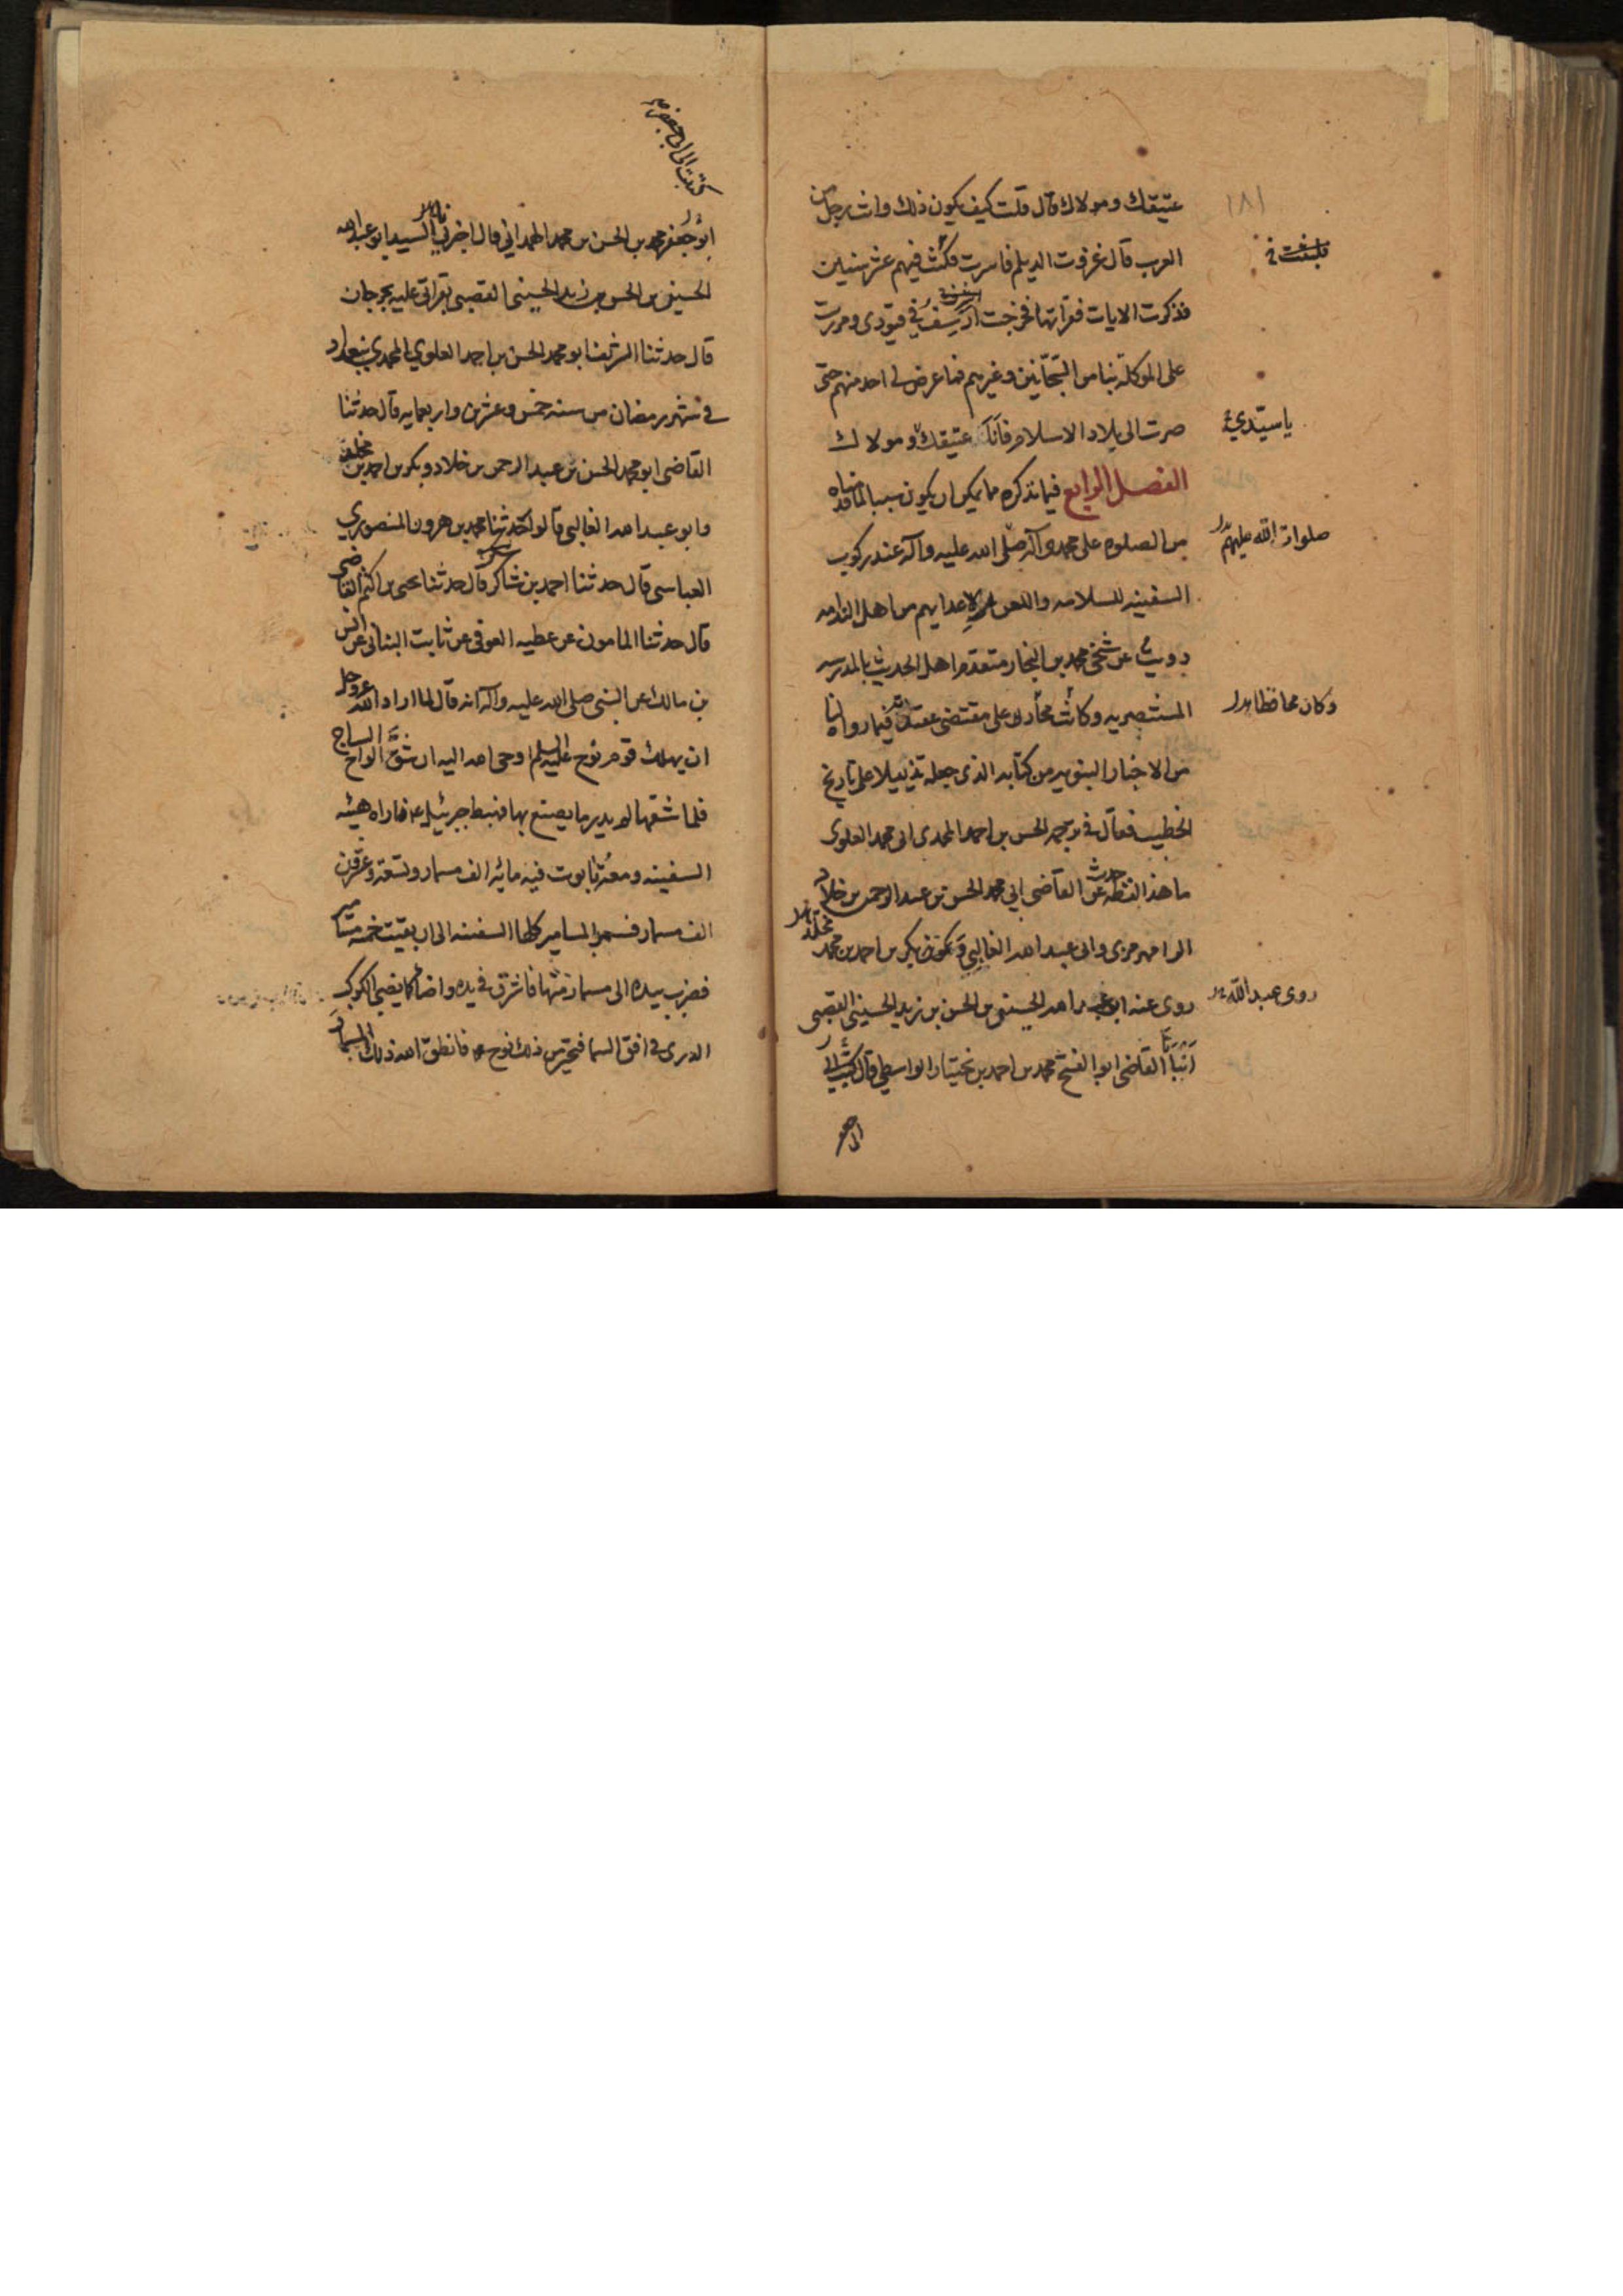 ١٨١
عتيقك ومولاك قال قلت كيف يكون ذلك وانت رجل من
العرب قال غزوت الديلم فاسرت فمكثت فيهم عشر سنين
فلبثت في
فذكرت الايات فقرأتها فخرجت ارسف في قيودى ومررت
على الموكلة بنا من السجانين وغيرهم فما عرض لي احد منهم حتى
صرت الى بلاد الاسلام فانا عتيقك ومولاك
يا سيدي
الفصل الرابع فيما نذكره مما يمكن ان يكون سببا لما قدمناه
من الصلوة على محمد وآله صلى الله عليه وآله عند ركوب
صلوات الله عليهم
السفينه للسلامه واللعن لاعدايهم من اهل الندامه
رويت عن شيخي محمد بن النجار متقدم اهل الحديث بالمدرسه
المستنصريه وكانت محاذرا على مقتضى عقيدته فيما رواه لنا
وكان محافظا
من الاخبار النبويه من كتابه الذى جعله تذييلا على تاريخ
الخطيب فقال في ترجمه الحسن بن احمد المحمدى ابى محمد العلوى
ما هذا لفظه حدث عن القاضي ابي محمد الحسن بن عبد الرحمن بن خلاد
الرامهرمزى وابى عبد الله الغالبي وبكر بن احمد بن محمد
مخلد
روى عنه ابو عبد الله الحسين بن الحسن بن زيد الحسيني القصبى
روى عبد الله
انبأنا القاضي ابو الفتح محمد بن احمد بن بختيار الواسطي قال كتب الي
ابو جعفر
كتبت الى ابي جعفر
ابو جعفر محمد بن الحسن بن محمد الهمداني قال اخبرني السيد ابو عبد الله
الحسين بن الحسن بن زيد الحسيني القصبى بقراتى عليه بجرجان
قال حدثنا الشريف ابو محمد الحسن بن احمد العلوي المحمدي ببغداد
في شهر رمضان من سنه خمس وعشرين واربعمايه قال حدثنا
القاضي ابو محمد الحسن بن عبد الرحمن بن خلاد وبكر بن احمد بن مخلد
وابو عبد الله الغالبى قالوا حدثنا محمد بن هرون المنصوري
العباسى قال حدثنا احمد بن شاكر قال حدثنا يحيى بن اكثم القاضى
قال حدثنا المامون عن عطيه العوفى عن ثابت البنانى عن انس
بن مالك عن النبي صلى الله عليه وآله انه قال لما اراد الله عز وجل
ان يهلك قوم نوح عليه السلم اوحى الله اليه ان شق الواح الساج
فلما شقها لم يدر ما يصنع بها فهبط جبرئيل ع فاراه هيئه
السفينه ومعه تابوت فيه مائه الف مسمار وتسعة وعشرون
الف مسمار فسمر بالمسامير كلها السفينه الى ان بقيت خمسه مسامير
فضرب بيده الى مسمار منها فاشرق في يده واضاء كما يضي الكوكب
الدرى في افق السما فتحير من ذلك نوح ع فانطق الله ذلك المسمار